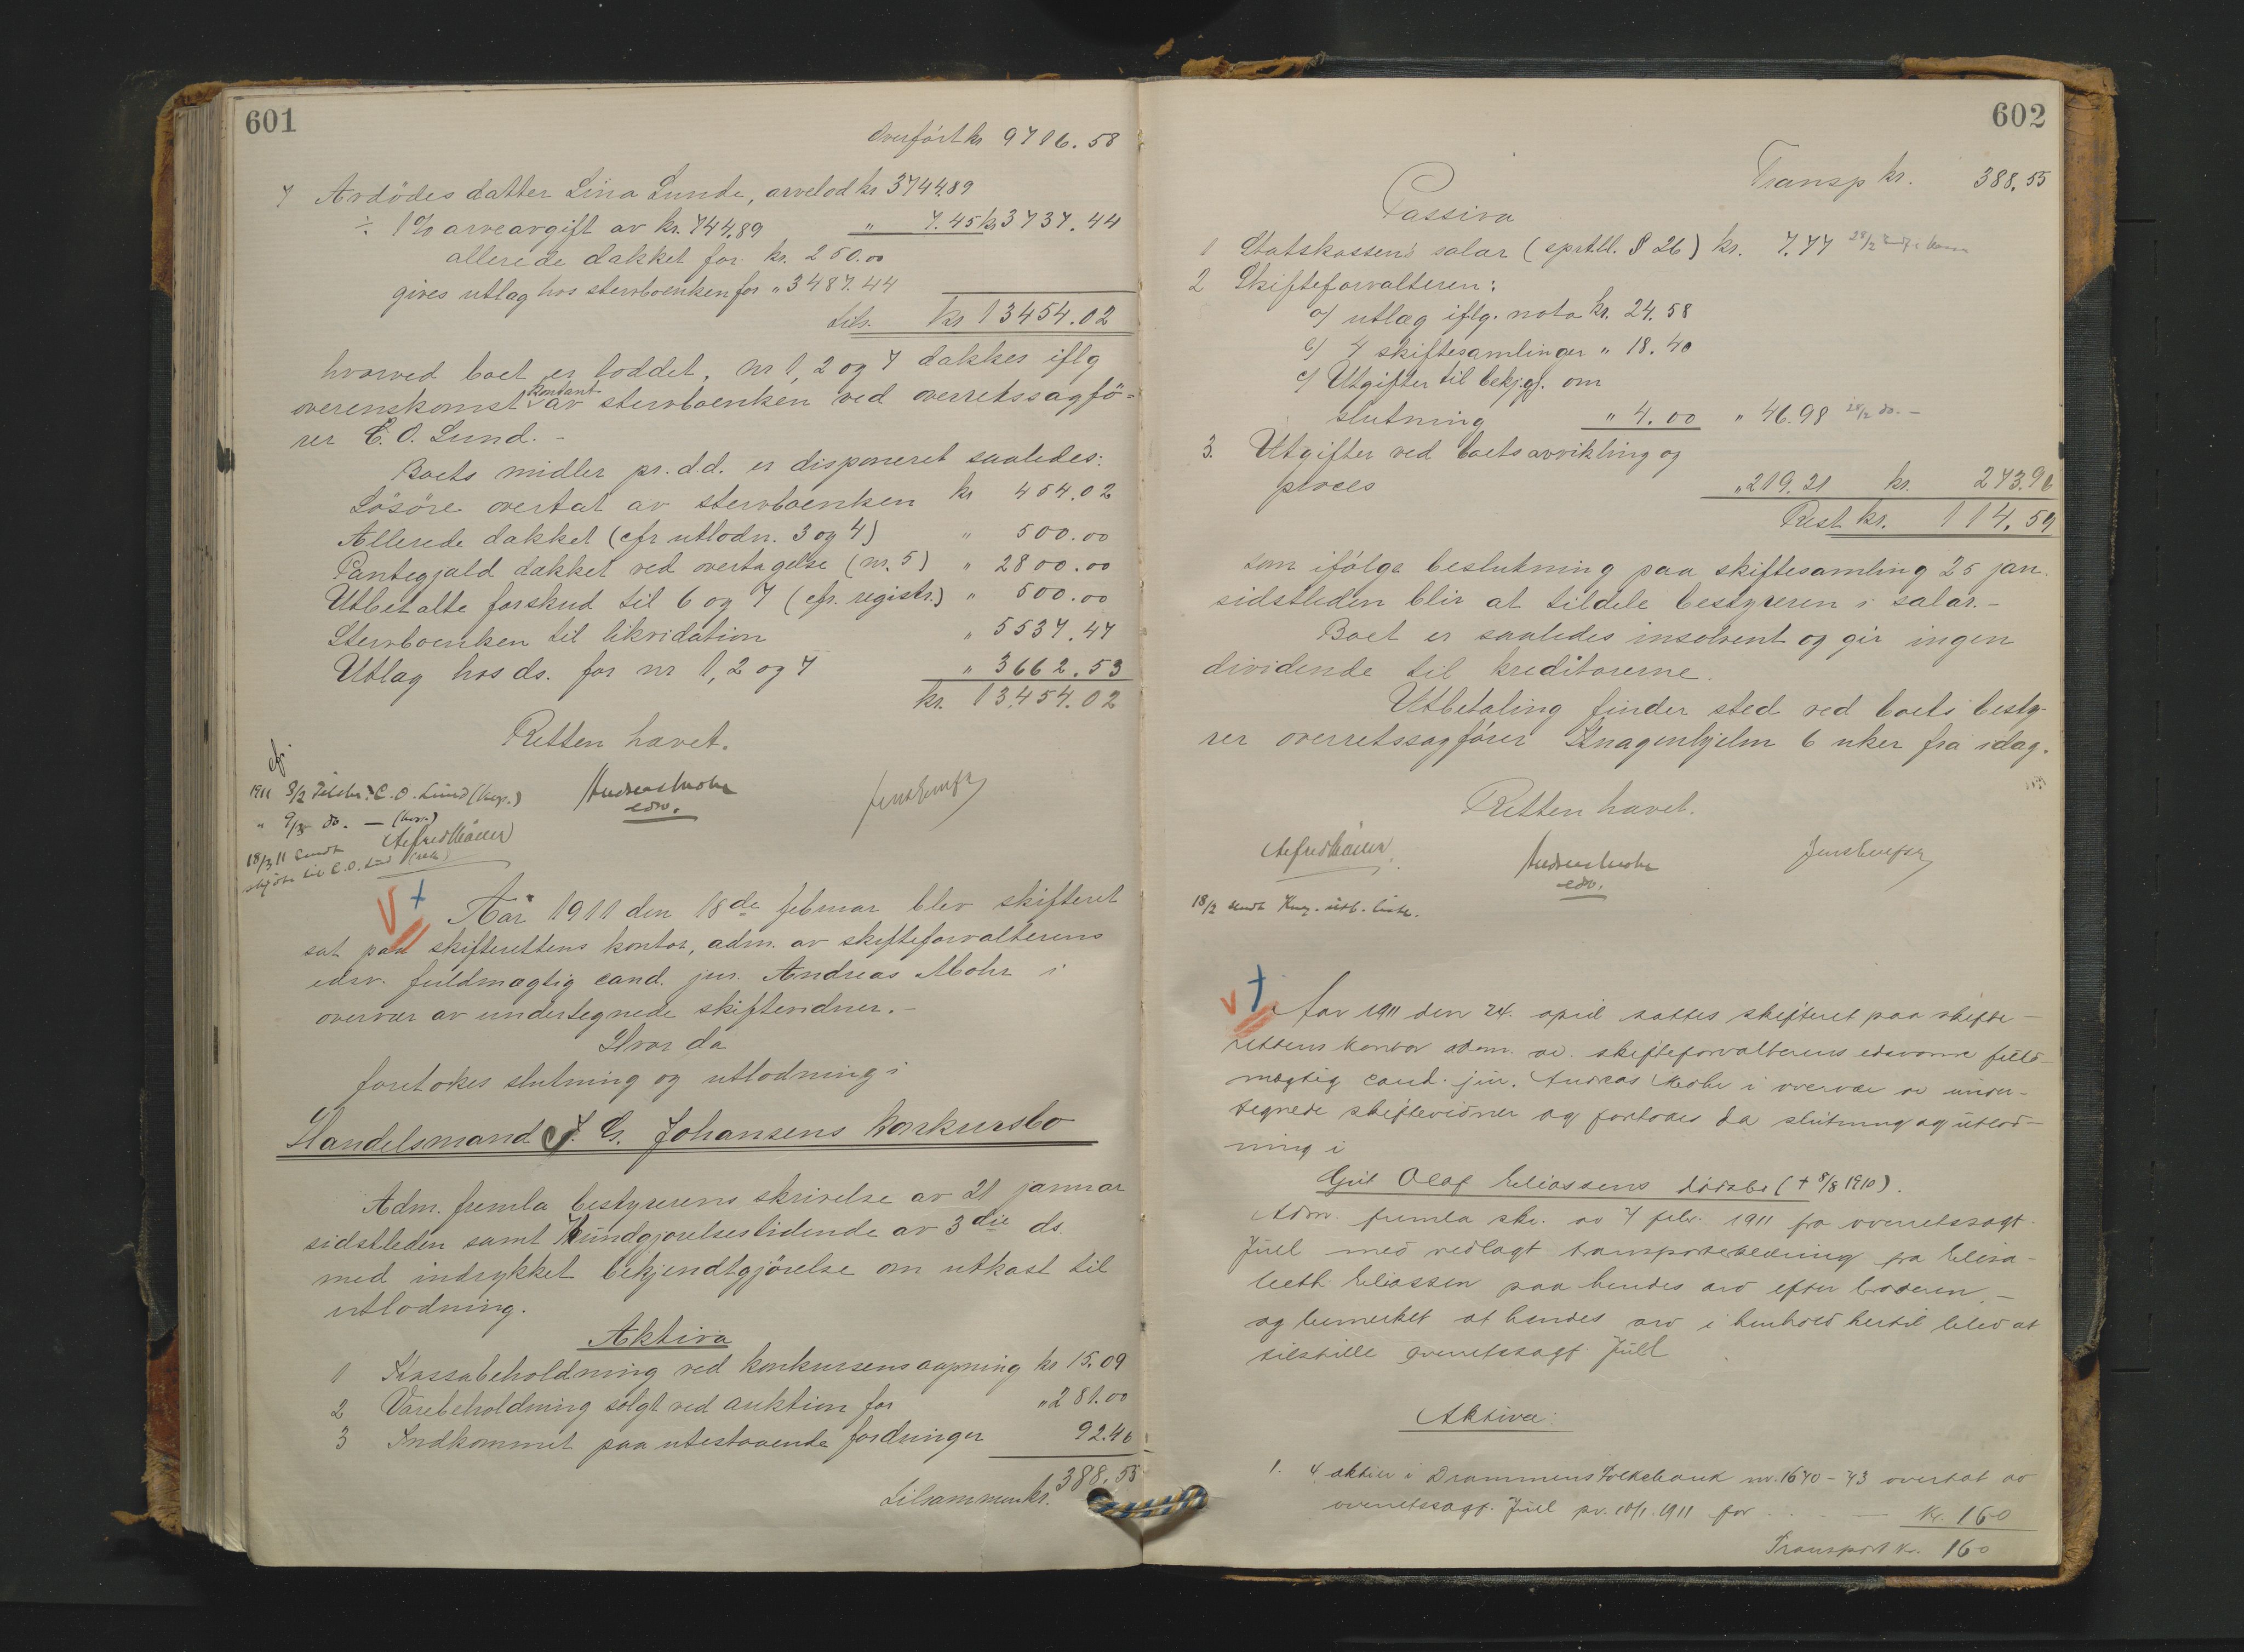 601
Overført kr 9716.58
7 Avdödes datter Lina Lunde, arvelod kr 3744.89
÷ 1% arveavgift av kr. 744.89 " 7.45 kr 3737.44
allerede dækket for kr. 250.00
gives utlag hos stervboenken for " 3487.44
Tils. kr 13454.02
hvorved boet er loddet. nr 1, 2 og 7 dækkes iflg
overenskomst kontant av stervboenken ved overretssagfö-
rer C. O. Lund. -
Boets midler pr. d.d. er disponeret saaledes:
Lösöre overtat av stervboenken kr 454.02
Allerede dækket (cfr utlodn. 3 og 4) " 500.00
Pantegjæld dækket ved overtagelse (nr. 5) " 2800.00
Utbetalte forskud til 6 og 7 (cfr. registr.) " 500.00
Stervboenken til likvidation " 5537.47
Utlag hos ds. for nr 1, 2 og 7 " 3662.53
kr. 13.454.02
Retten hævet.
cfr.
1911 8/2 C. O. Lund
Andreas Mohr
edsv.
" 9/3 do. —
18/3 11 sendt
skjöte til C. O. Lund
Aar 1911 den 18de februar blev skifteret
sat paa skifterettens kontor, adm. av skifteforvalterens
edsv. fuldmægtig cand. jur. Andreas Mohr i
overvær av undertegnede skiftevidner. -
Hvor da
foretokes slutning og utlodning i
Handelsmand J. G. Johansens konkursbo
Adm. fremla bestyrerens skrivelse av 21 januar
sidstleden samt Kundgjørelsestidende av 3die ds.
med indrykket bekjendtgjörelse om utkast til
utlodning.
Aktiva
1 Kassabeholdning ved konkursens aapning kr 15.09
2 Varebeholdning solgt ved auktion for " 281.00
3 Indkommet paa utestaaende fordringer 92.46
Tilsammen kr. 388.55
602
Transp kr. 388.55
Passiva
1 Statskassens salær (sprtll. § 26) kr. 7.77 28/2
2 Skifteforvalteren:
a) utlæg iflg. nota kr. 24.58
b) 4 skiftesamlinger " 18.40
c) Utgifter til bekj.gj. om
slutning " 4.00 " 46.98 28/2 do. -
3. Utgifter ved boets avvikling og
proces " 219.21 kr. 273.96
Rest kr. 114.59
som ifölge beslutning paa skiftesamling 25 jan.
sidstleden blir at tildele bestyreren i salær. -
Boet er saaledes insolvent og gir ingen
dividende til kreditorerne.
Utbetaling finder sted ved boets besty-
rer overretssagfører Knagenhjelm 6 uker fra idag.
Retten hævet.
Andreas Mohr
edsv.
18/2 sendt Knag. utl. liste.
Aar 1911 den 24. april sattes skifteret paa skifte-
rettens kontor adm. av. skifteforvalterens edsvorne fuld-
mægtig cand. jur. Andreas Mohr i overvær av under-
tegnede skiftevidner og foretokes da slutning og utlod-
ning i
Gut Olaf Eliassens dödsbo († 8/8 1910).
Adm. fremla skr. av 7 febr. 1911 fra overretssagf.
Juel med vedlagt transporterklæring fra Elisa-
beth Eliassen paa hendes arv efter broderen, -
og bemerket at hendes arv i henhold hertil blev at
tilstille overretssagf. Juel
Aktiva:
1. 4 aktier i Drammens Folkebank nr. 1670-73 overtat av
overretssagf. Juel pr. 10/1.1911 for . . . — Kr. 160
Transport kr. 160